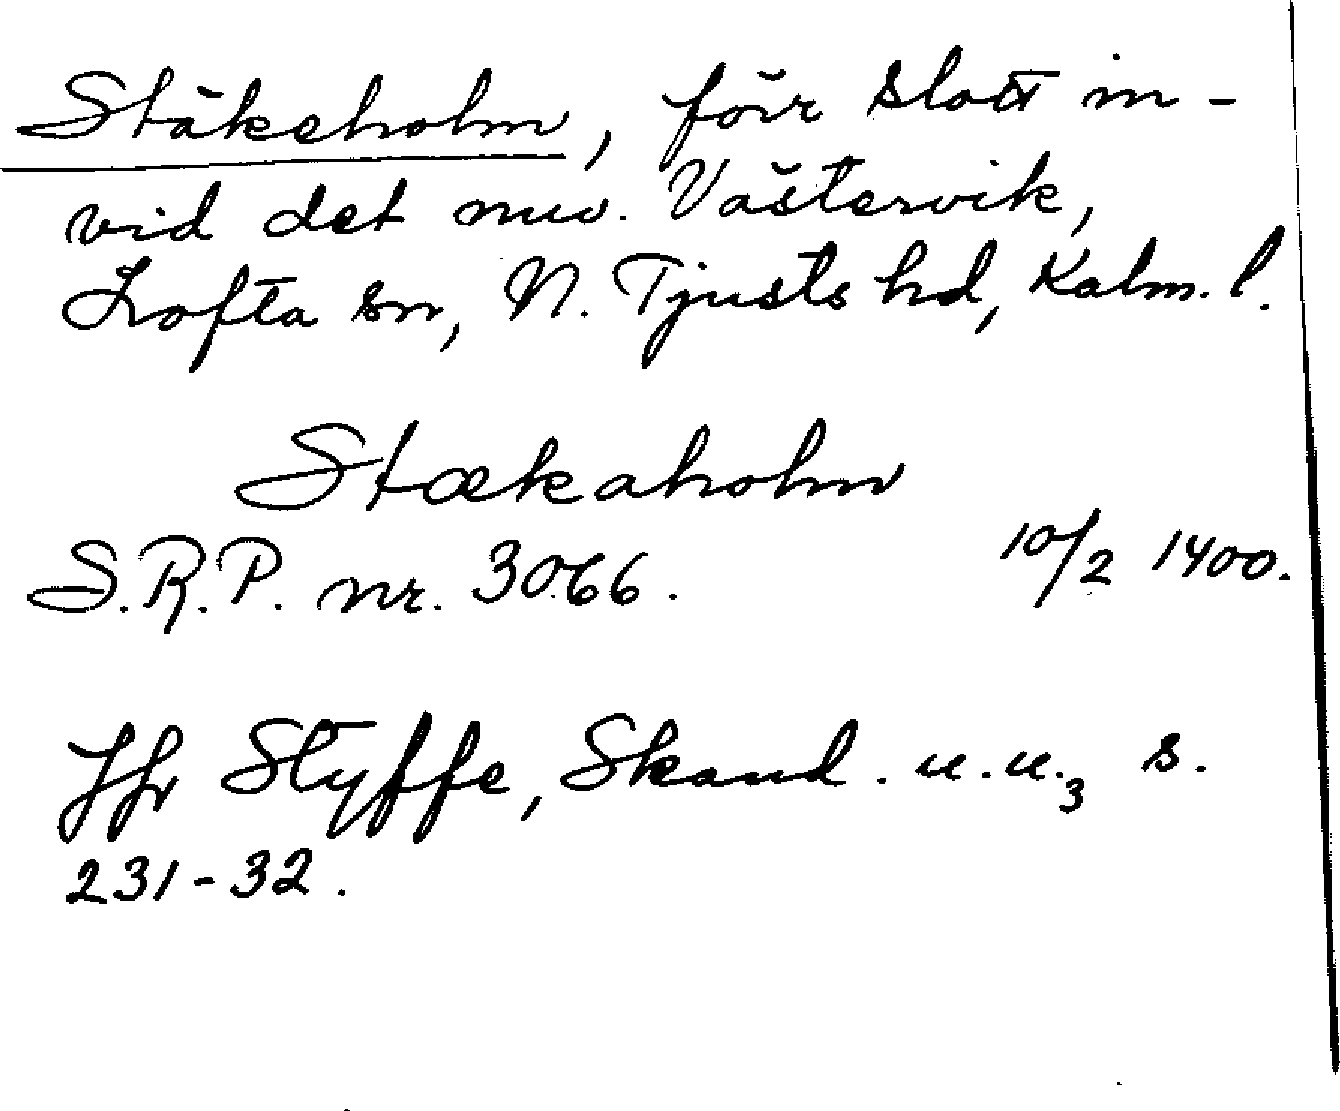 Stäkeholm, förr slott in-
vid det nuv. Västervik,
Lofta sn, N. Tjusts hd, Kalm. l.
Stækaholm
S.R.P. nr. 3066. 10/2 1400.
Jfr Styffe, Skand. u. u.3 s.
231-32.